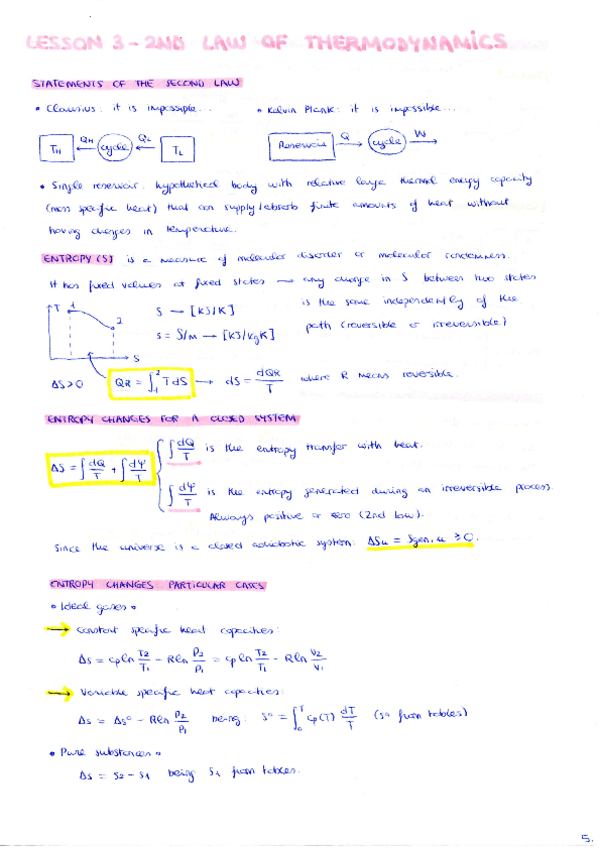 LESSON 3 - 2ND LAW OF THERMODYNAMICS
STATEMENTS OF THE SECOND LAW
• Clausius: it is impossible...
• Kelvin Plank: it is impossible...
TH ← QH cycle ← QL TL
Reservoir Q → cycle W →
• Single reservoir: hypothetical body with relative large thermal energy capacity
(mass specific heat) that can supply/absorb finite amounts of heat without
having changes in temperature.
ENTROPY (S) is a measure of molecular disorder or molecular randomness.
It has fixed values at fixed states → any change in S between two states
is the same independently of the
path (reversible or irreversible)
T 1 2 S
S → [kJ/K]
s = S/m → [kJ/kgK]
ΔS>0 QR = ∫₁² TdS → dS = dQR/T where R means reversible.
ENTROPY CHANGES FOR A CLOSED SYSTEM
ΔS = ∫dQ/T + ∫dΨ/T
∫dQ/T is the entropy transfer with heat.
∫dΨ/T is the entropy generated during an irreversible process.
Always positive or zero (2nd law).
Since the universe is a closed adiabatic system: ΔSu = Sgen,u ≥ 0.
ENTROPY CHANGES PARTICULAR CASES
• Ideal gases •
→ Constant specific heat capacities:
Δs = cp ln T2/T1 - R ln P2/P1 = cp ln T2/T1 - R ln V2/V1
→ Variable specific heat capacities:
Δs = Δs° - R ln P2/P1 being: s° = ∫₀ᵀ cp(T) dT/T (s° from tables)
• Pure substances •
Δs = s2 - s1 being s1 from tables.
5.